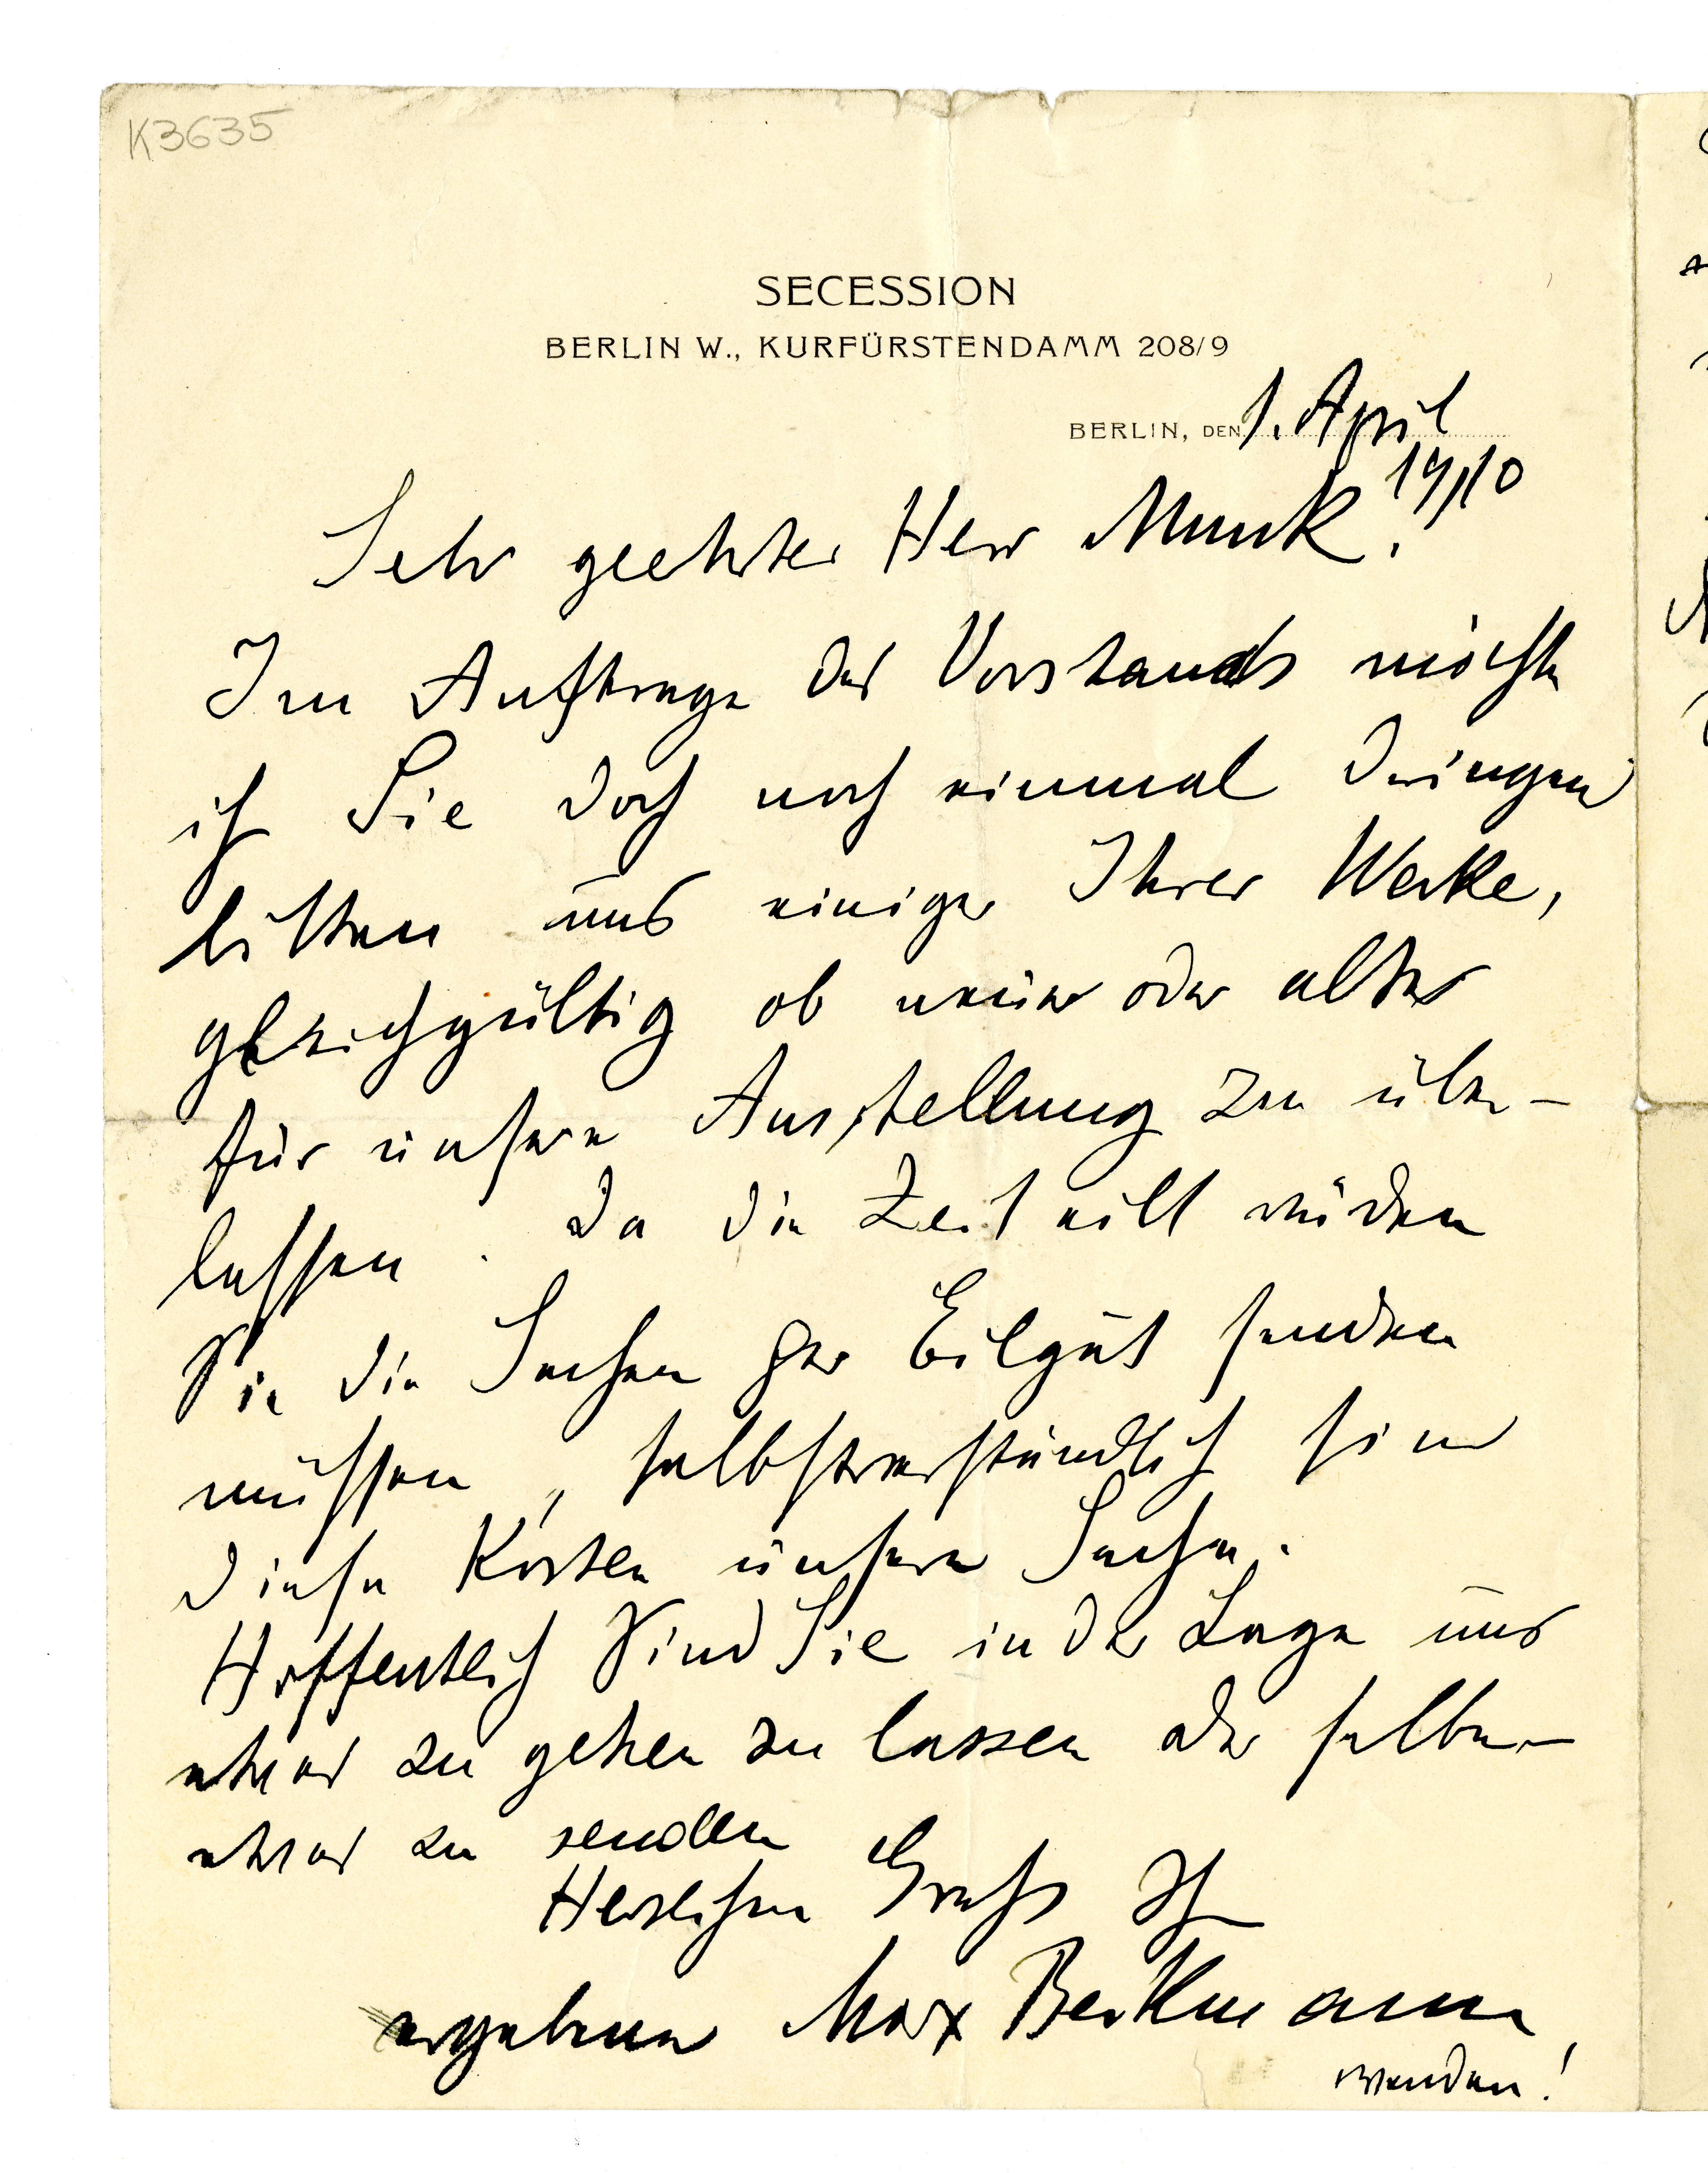 K3635
SECESSION
BERLIN W., KURFÜRSTENDAMM 208/9
BERLIN, DEN 1. April
1910
Sehr geehrter Herr Munk!
Im Auftrage des Vorstands möchte
ich Sie doch noch einmal dringend
bitten uns einige Ihrer Werke,
gleichgültig ob neue oder alte
für unsere Ausstellung zu über-
lassen. Da die Zeit eilt würden
Sie die Sachen per Eilgut senden
müssen, selbstverständlich sind
diese Kosten unsere Sache.
Hoffentlich sind Sie in der Lage uns
etwas zu gehen zu lassen oder selber
etwas zu senden
Herzlichen Gruss Ihr
ergebener Max Beckmann
wenden!